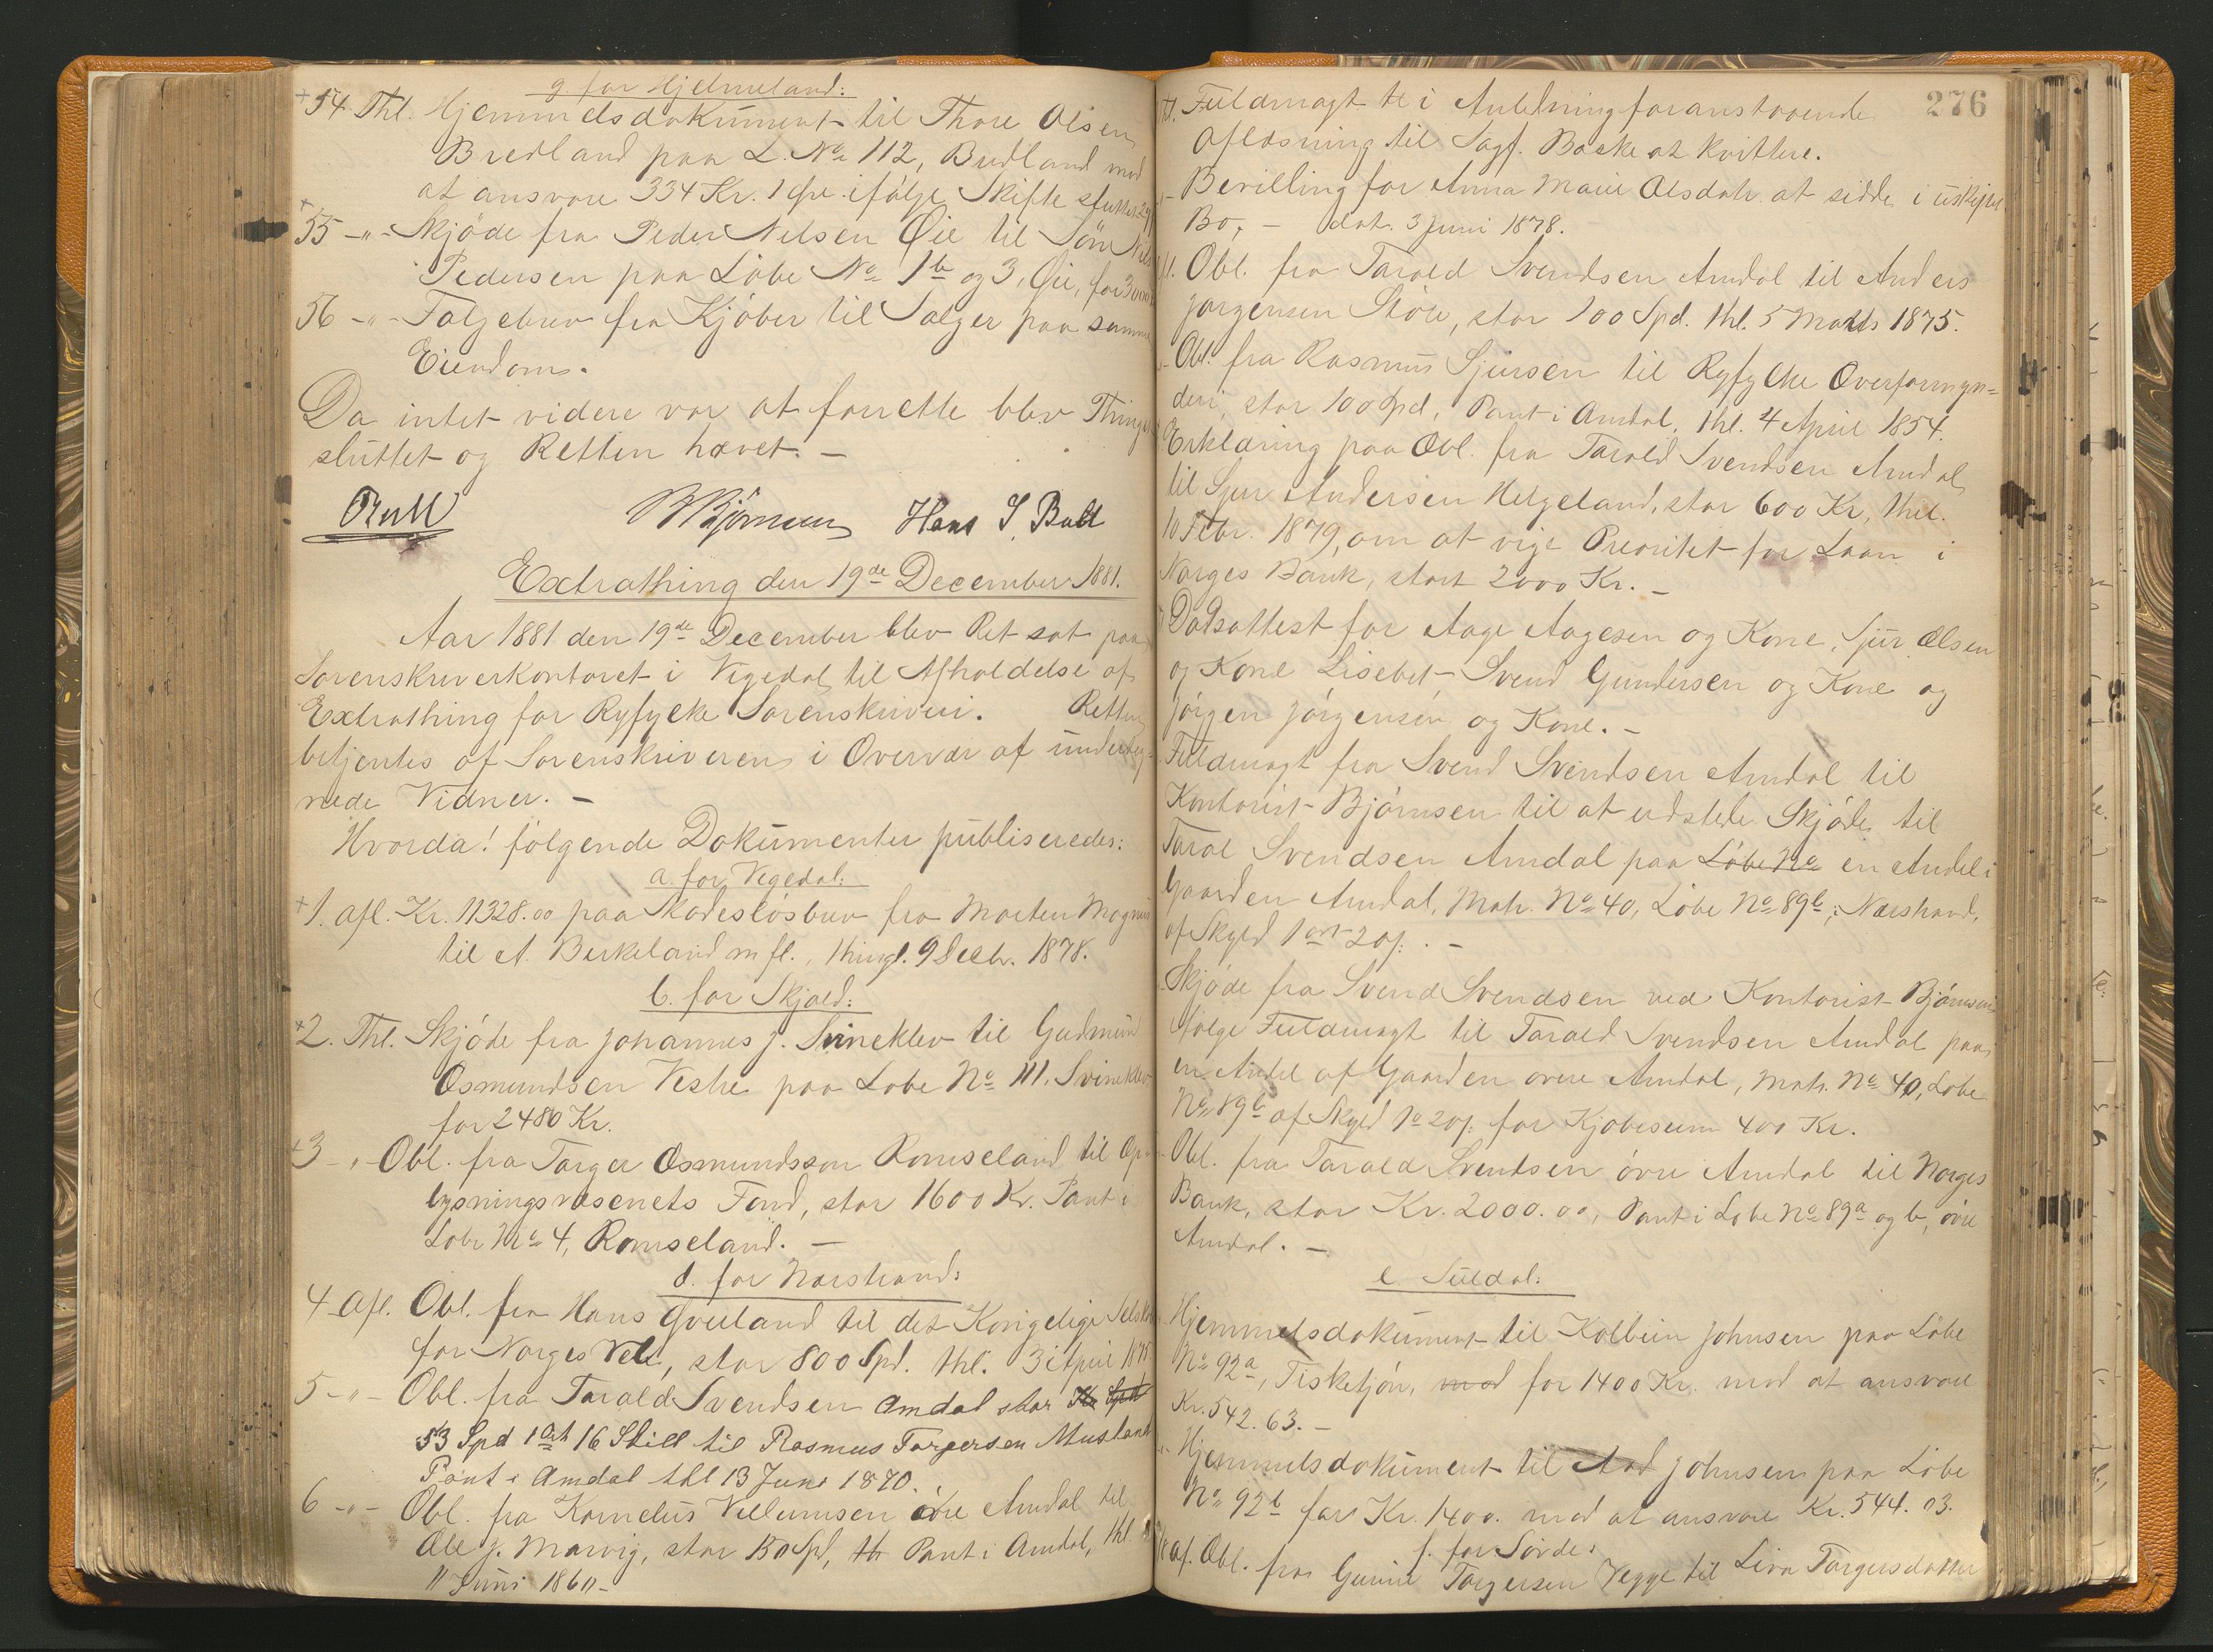 g. for Hjelmeland:
54 Thl. Hjemmelsdokument til Thore Olsen
Bredland paa L. No 112, Bredland mod
at ansvare 334 Kr. 1 Øre ifølge Skifte sluttet
55 -"- Skjøde fra Peder Nelsen Øie til Søn Nils
Pedersen paa Løbe No 1b og 3, Øie, for 3000
56 -"- Følgebrev fra Kjøber til Sælger paa samme
Eiendom.
Da intet videre var at forrette blev Thinget
sluttet og Retten hævet. -
Bull Bjørnsen Hans S. Bull
Extrathing den 19de December 1881.
Aar 1881 den 19de December blev Ret sat paa
Sorenskriverkontoret i Vigedal til Afholdelse af
Extrathing for Ryfylke Sorenskriveri. Retten
betjentes af Sorenskriveren i Overvær af underteg-
nede Vidner. -
Hvorda! følgende Dokumenter publiseredes:
a. for Vegedal:
+1. Afl. Kr. 11328.00 paa Skadesløsbrev fra Morten Magnus
til A. Birkeland m fl., thingl. 9 Decbr. 1878.
b. for Skjold:
+2. Thl. Skjøde fra Johannes J. Svineklev til Gudmund
Osmundsen Vestre paa Løbe No 111. Svineklev
for 2480 Kr.
+3 -"- Obl. fra Torger Osmundsson Romseland til Op-
lysningsvæsenets Fond, stor 1600 Kr. Pant i
Løbe No 4, Romseland. -
d. for Nærstrand:
4 Afl. Obl. fra Hans Goveland til det Kongelige Selskab
for Norges Vel, stor 800 Spd. thl. 3 April
5 -"- Obl. fra Tarald Svendsen Amdal stor
53 Spd 1 Ort 16 Skill til Rasmus Torgersen Musland
Pant i Amdal thl 13 Juni 1870.
6 -"- Obl. fra Kornelius Vellumsen øvre Amdal til
Ole J. Marvig, stor 150 Spd, Pant i Amdal, thl.
11 Juni 1860 -
276
Fuldmagt til i Anledning foranstaaende
Aflæsning til Sagf. Baske at kvittere.
Bevilling for Anna Marie Olsdatr. at sidde i uskiftet
Bo, - dat. 3 Juni 1878.
Obl. fra Tarald Svendsen Amdal til Anders
Jørgensen Støle, stor 100 Spd. thl. 5 Marts 1875.
Obl. fra Rasmus Sjursen til Ryfylke Overformyn-
deri, stor 100 Spd, Pant i Amdal, thl. 4 April 1854.
Erklæring paa Obl. fra Tarald Svendsen Amdal
til Sjur Andersen Helgeland, stor 600 Kr, thl.
10 Febr. 1879, om at vige Prioritet for Laan i
Norges Bank, stort 2000 Kr. -
Dødsattest for Aage Aagesen og Kone, Sjur Olsen
og Kone Lisebet - Svend Gundersen og Kone og
Jørgen Jørgensen og Kone. -
Fuldmagt fra Svend Svendsen Amdal til
Kontorist Bjørnsen til at udstede Skjøde til
Taral Svendsen Amdal paa Løbe No en Andel i
Gaarden Amdal, Matr. No 40, Løbe No 89b, i Nærstrand,
af Skyld 1 ort 20 s. -
Skjøde fra Svend Svendsen ved Kontorist Bjørnsen
ifølge Fuldmagt til Tarald Svendsen Amdal paa
en Andel af Gaarden øvre Amdal, Matr. No 40, Løbe
No 89b af Skyld 1 o 20 s. for Kjøbesum 400 Kr.
Obl. fra Tarald Svendsen øvre Amdal til Norges
Bank, stor Kr. 2000.00, Pant i Løbe No 89a og b, øvre
Amdal. -
e Suldal:
Hjemmelsdokument til Kolbein Johnsen paa Løbe
No 92a, Fisketjøn, mod for 1400 Kr. mod at ansvare
Kr. 542.63. -
Hjemmelsdokument til Aad Johnsen paa Løbe
No 92b for Kr. 1400. mod at ansvare Kr. 544.03.
f. for Sövde:
Af. Obl. fra Gunne Torgersen Vegge til Liva Torgersdatter